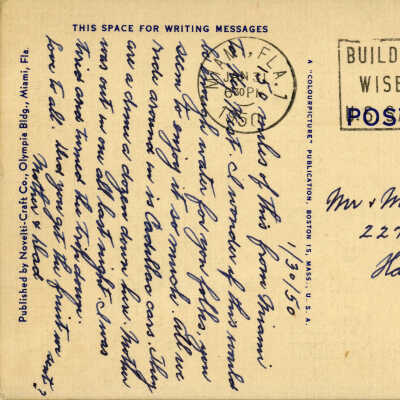 THIS SPACE FOR WRITING MESSAGES
1/30/50
miles of this from Miami
West. I wonder if this would
be enough water for you folks, you
seem to enjoy it so much. All we
ride around in is Cadillac cars. They
are a dime a dozen down here. Mother
was out in one all last night. I was
tired and turned the trip down.
Love to all. Did you get the fruit or
not?
Mother & Dad
Published by Novelti-Craft Co., Olympia Bldg., Miami, Fla.
A "COLOURPICTURE" PUBLICATION, BOSTON 15, MASS., U. S. A.
MIAMI, FLA. 1
JAN 31
630 PM
1950
BUILD
WISE
POS
Mr & M
227
Ha